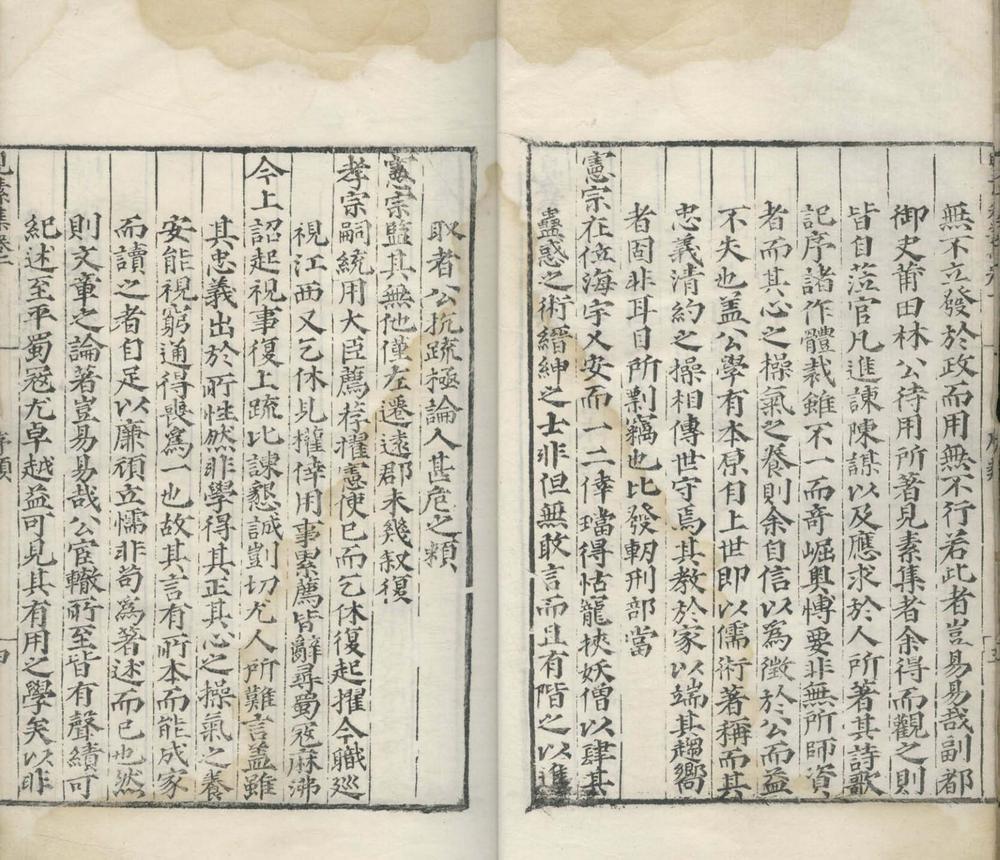 無不立發於政而用無不行若此者豈易易哉副都
御史莆田林公待用所著見素集者余得而觀之則
皆自蒞官凡進諫陳謀以及應求於人所著其詩歌
記序諸作體裁雖不一而奇崛奧愽要非無所師資
者而其心之操氣之養則余自信以為徵於公而益
不失也盖公學有本原自上世即以儒術著稱而其
忠義清約之操相傳世守焉其教於家以端其趨嚮
者固非耳目所剽竊也比發軔刑部當
憲宗在位海宇乂安而一二倖璫得怙寵挾妖僧以肆其
蠱惑之術縉紳之士非但無敢言而且有階之以進
取者公抗疏極論人甚危之頼
憲宗監其無他僅左遷遠郡未幾叙復
孝宗嗣統用大臣薦荐擢憲使已而乞休復起擢今職巡
視江西又乞休㒷權倖用事累薦皆辭尋蜀冦麻沸
今上詔起視事復上疏比諫懇誠剴切尤人所難言盖雖
其忠義出於所性然非學得其正其心之操氣之養
安能視窮通得喪為一也故其言有所本而能成家
而讀之者自足以廉頑立懦非苟為著述而已也然
則文章之論著豈易易哉公宦轍所至皆有聲績可
紀述至平蜀冦尤卓越益可見其有用之學矣以非
見素集卷